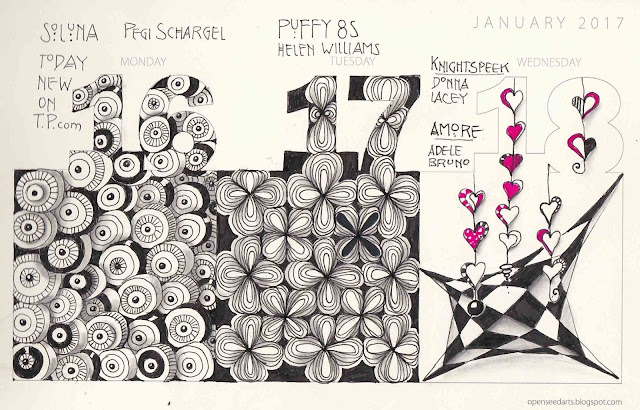 JANUARY 2017
SOLUNA PEGI SCHARGEL
TODAY
NEW
ON
T.P.com
MONDAY
16
PUFFY 8S
HELEN WILLIAMS
TUESDAY
17
WEDNESDAY
18
KNIGHTSPEEK
DONNA
LACEY
AMORE
ADELE
BRUNO
openseedarts.blogspot.com